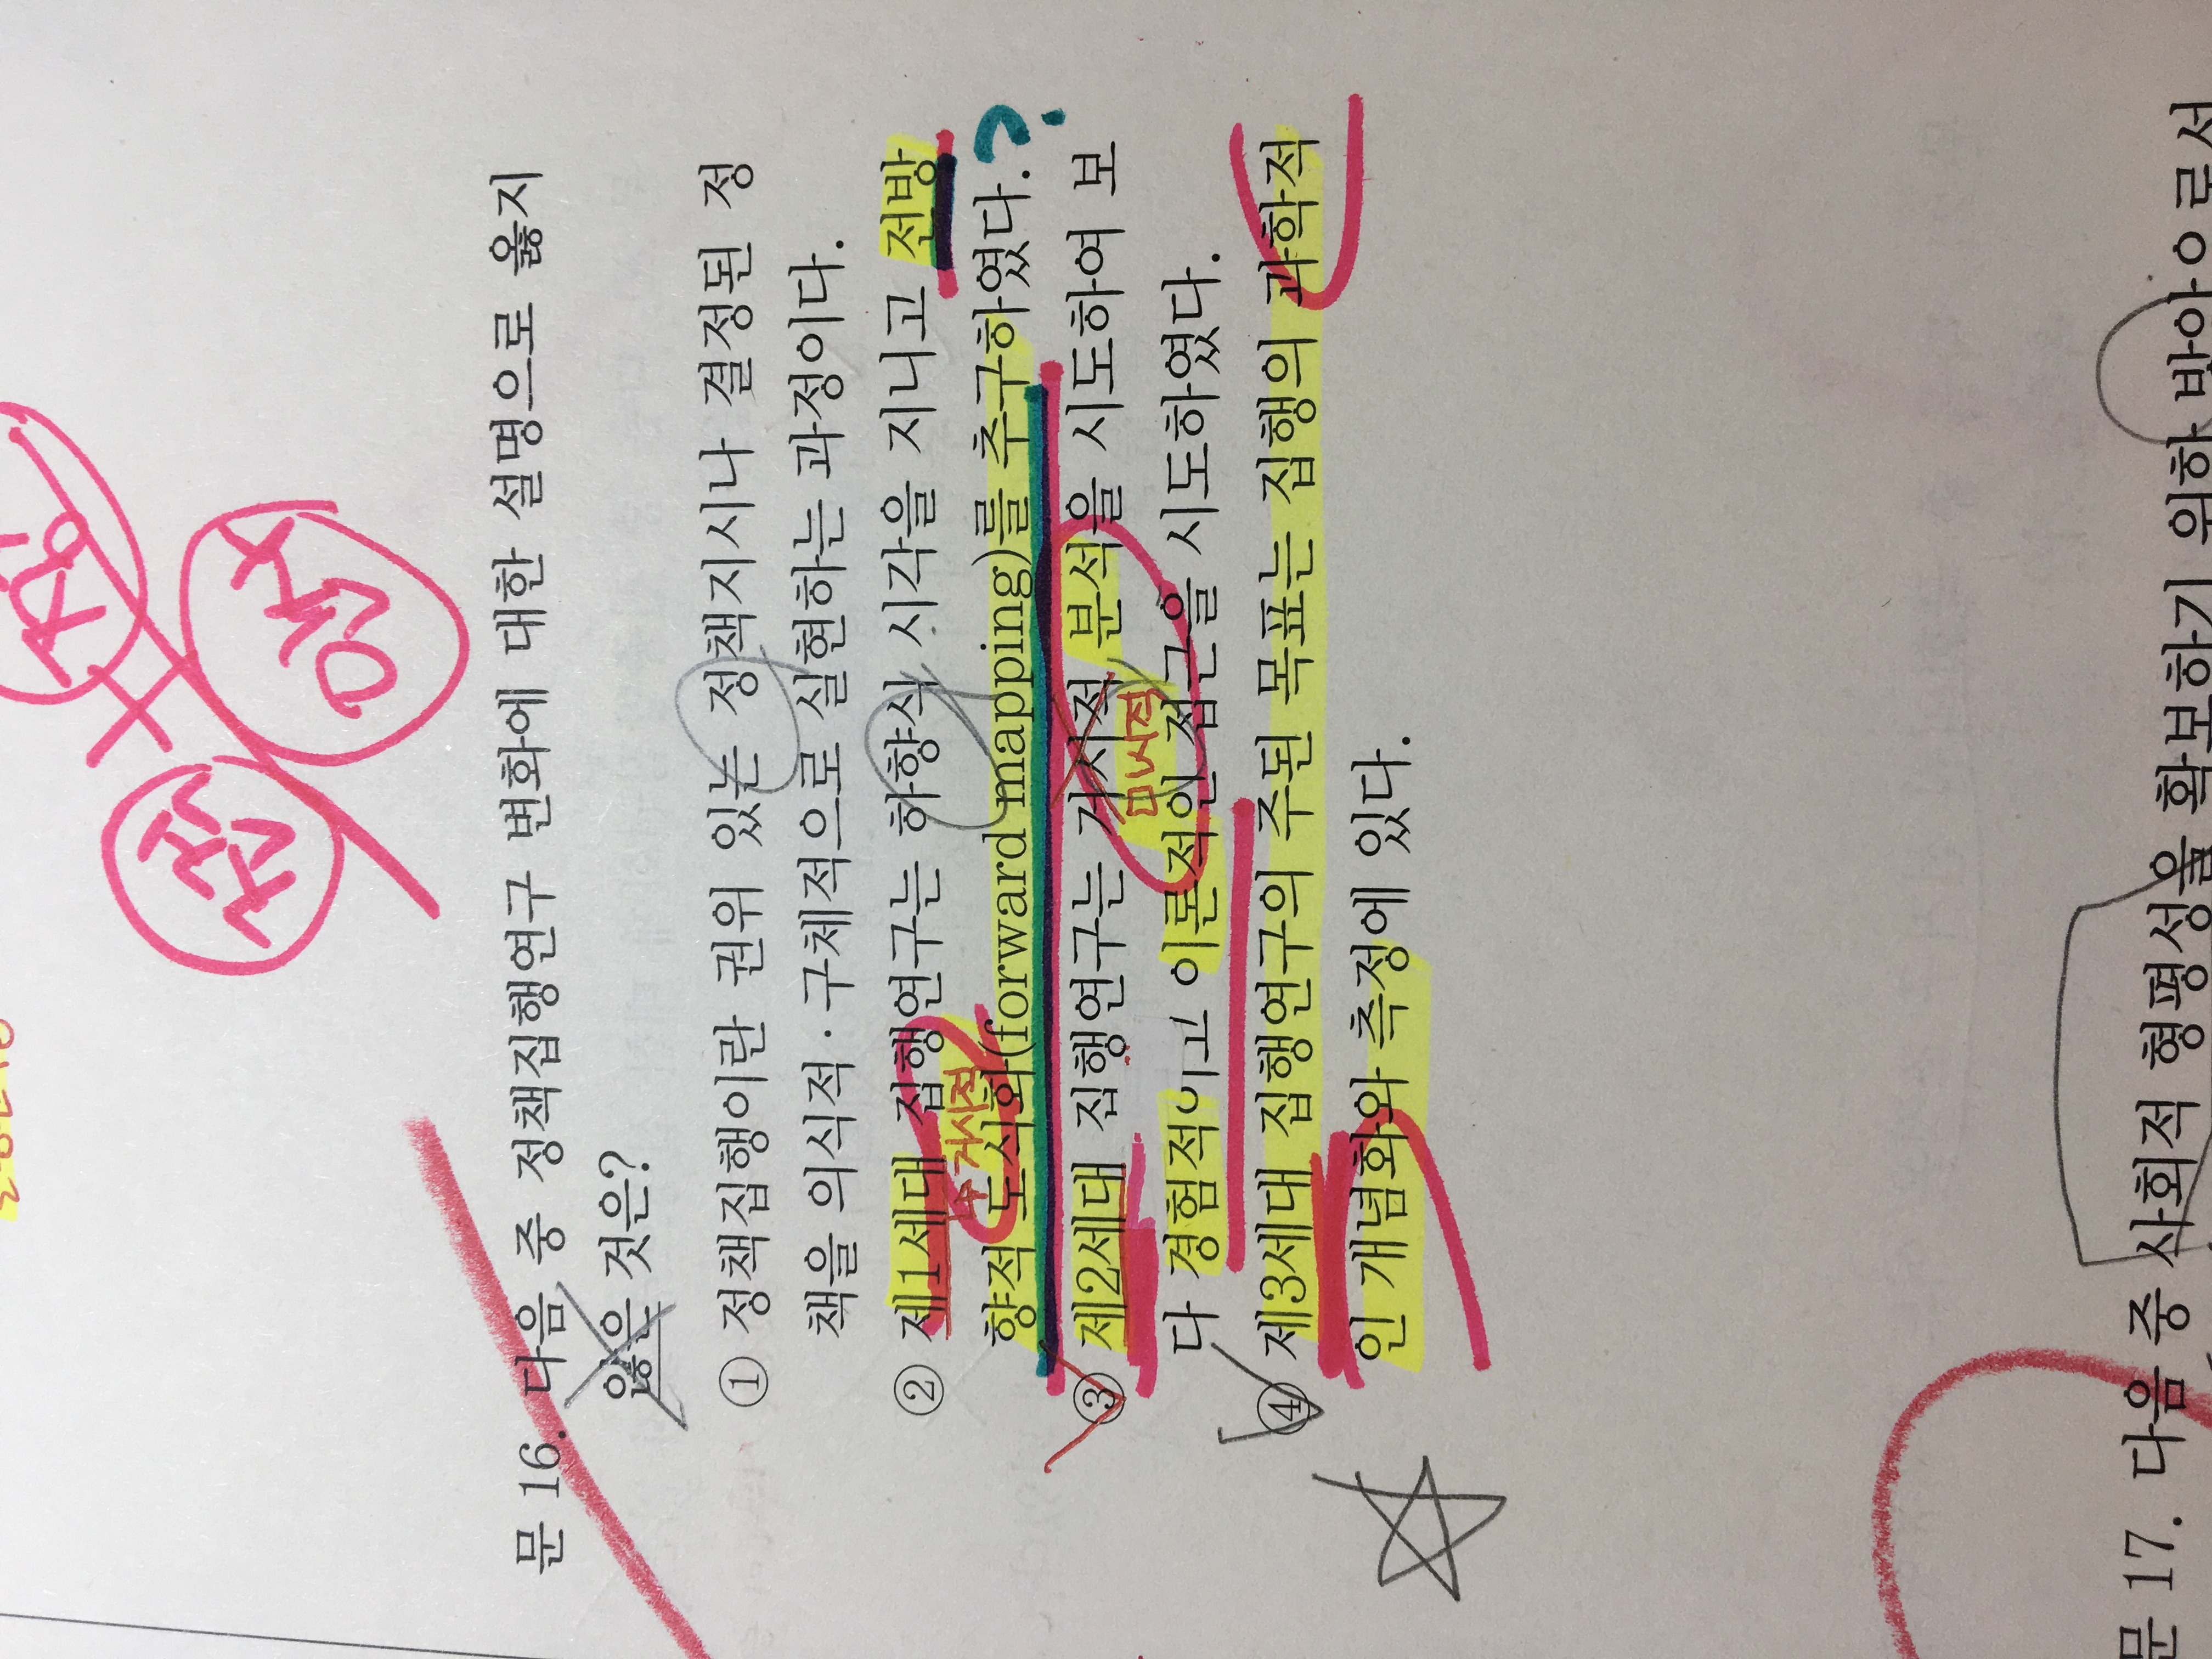 전
양식
문 16. 다음 중 정책집행연구 변화에 대한 설명으로 옳지
않은 것은?
① 정책집행이란 권위 있는 정책지시나 결정된 정
책을 의식적·구체적으로 실현하는 과정이다.
② 제1세대 집행연구는 하향식 시각을 지니고 전방
거시적
향적 도식화(forward mapping)를 추구하였다.?
③ 제2세대 집행연구는 거시적 분석을 시도하여 보
미시적
다 경험적이고 이론적인 접근을 시도하였다.
④ 제3세대 집행연구의 주된 목표는 집행의 과학적
인 개념화와 측정에 있다.
문 17. 다음 중 사회적 형평성을 확보하기 위한 방안으로서